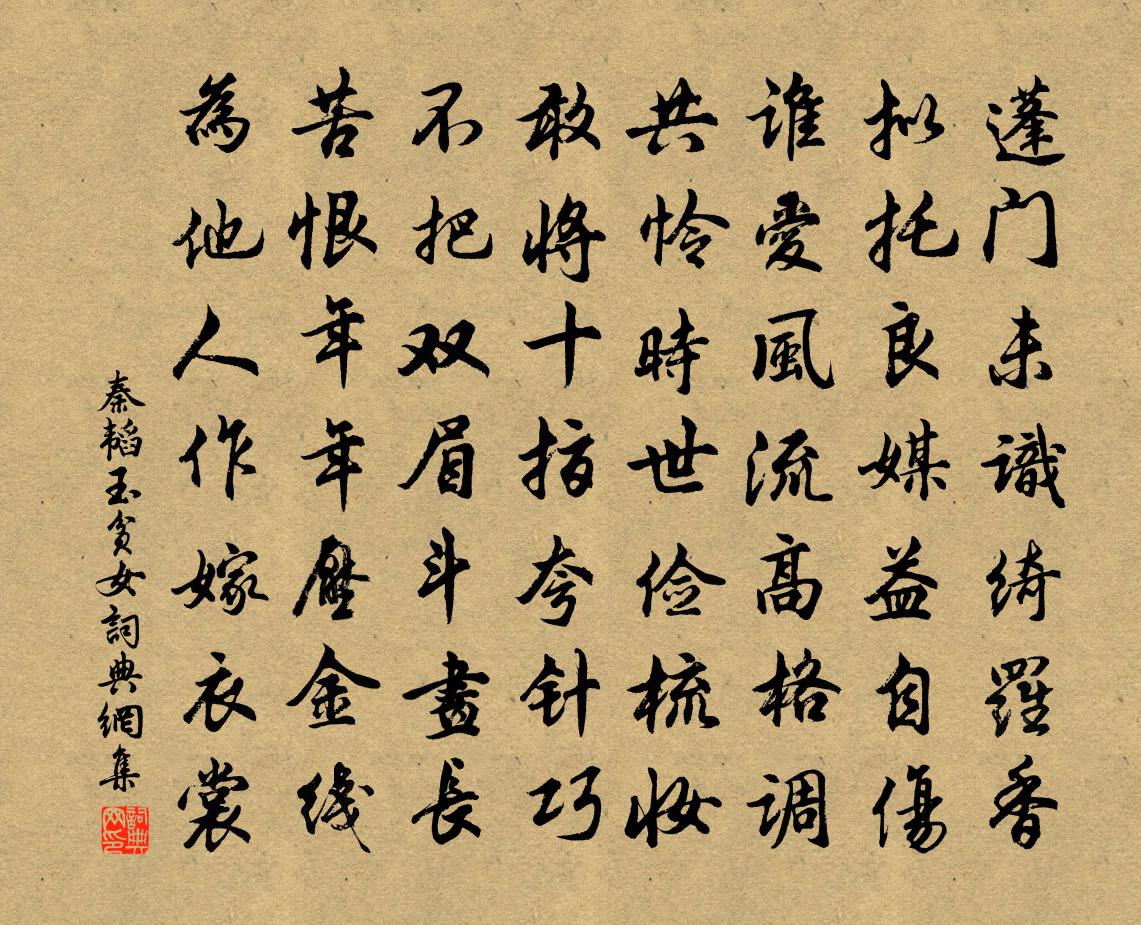 蓬门未識绮羅香
拟托良媒益自傷
谁愛風流高格调
共怜時世俭梳妝
敢將十指夸针巧
不把双眉斗畫長
苦恨年年壓金线
為他人作嫁衣裳
秦韬玉貧女詞典網集
詞典网印